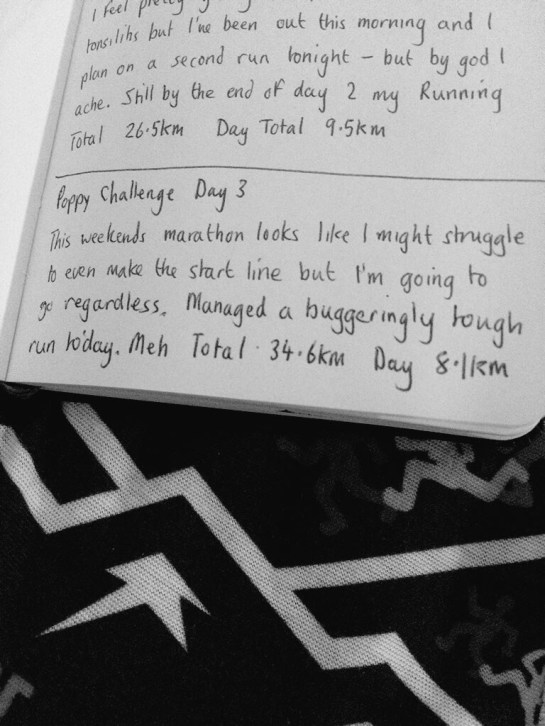 I feel pretty
tonsilihs but I've been out this morning and I
plan on a second run tonight - but by god I
ache. Still by the end of day 2 my Running
Total 26.5km Day Total 9.5km
Poppy Challenge Day 3
This weekends marathon looks like I might struggle
to even make the start line but I'm going to
go regardless. Managed a buggeringly tough
run today. Meh Total . 34.6km Day 8.1km